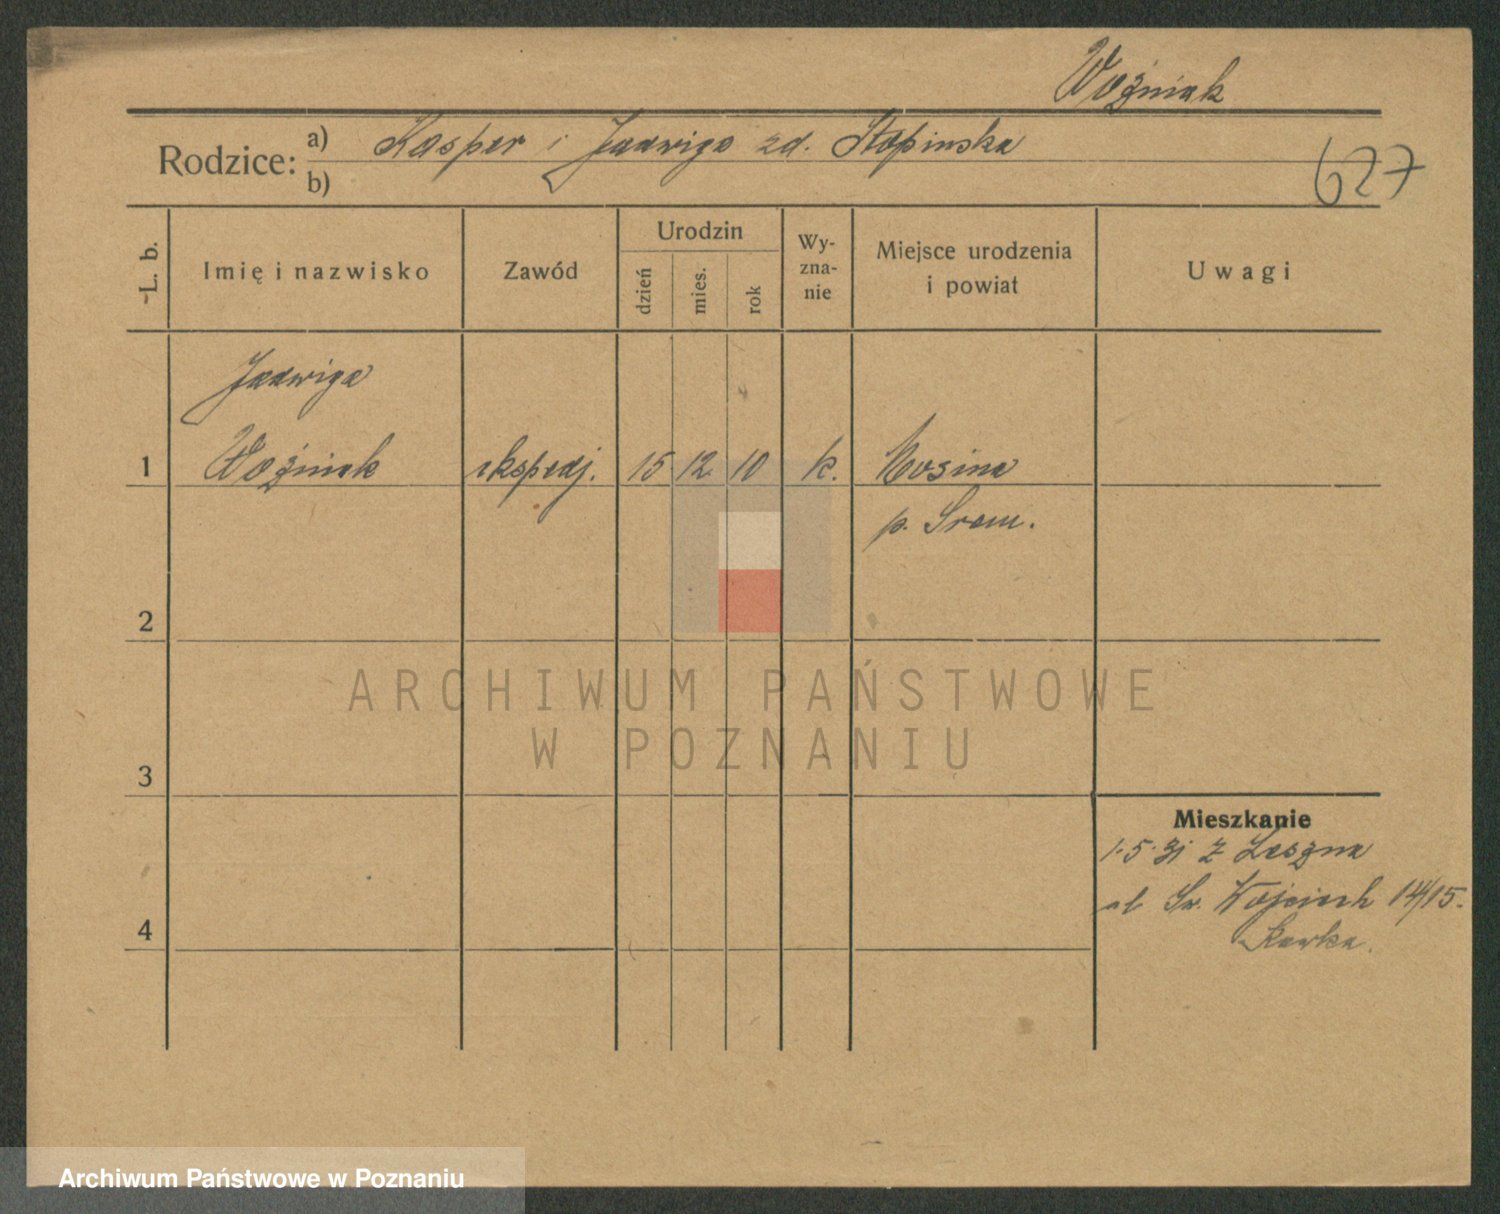 Woźniak
Rodzice: a) Kasper i Jadwiga zd. Stopinska
b)
627
L. b.
Imię i nazwisko
Zawód
Urodzin
dzień
mies.
rok
Wy-
zna-
nie
Miejsce urodzenia
i powiat
Uwagi
Jadwiga
1 Woźniak ekspedj. 15 12 10 k. Mosina
p. Srem.
2
ARCHIWUM PAŃSTWOWE
W POZNANIU
3
Mieszkanie
1.5.31 z Leszna
ul Sw. Wojciech 14/15.
4
Kawka.
Archiwum Państwowe w Poznaniu